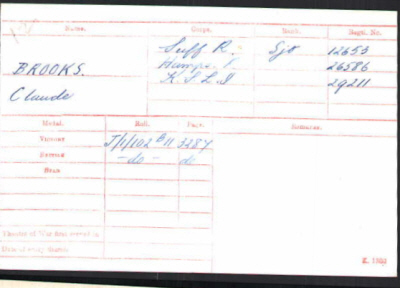 Name. Corps. Rank. Regtl. No.
Suff R. Sjt 12653
BROOKS. Hamps. R. 26586
Claude K.S.L.I 29211
Medal. Roll. Page. Remarks.
VICTORY J/1/102 B11 3287
BRITISH -do- do
STAR
Theatre of War first served in
Date of entry therein
K. 1380